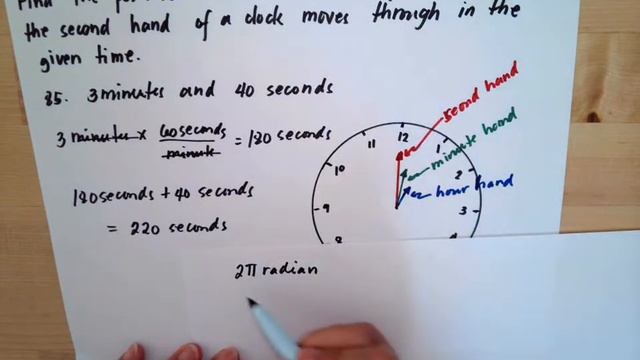 Find the
the second hand of a clock moves through in the
given time.
35. 3 minutes and 40 seconds
3 minutes × 60 seconds / minute = 180 seconds
180 seconds + 40 seconds
= 220 seconds
second hand
minute hand
hour hand
12
11
1
10
2
9
3
8
4
2π radian